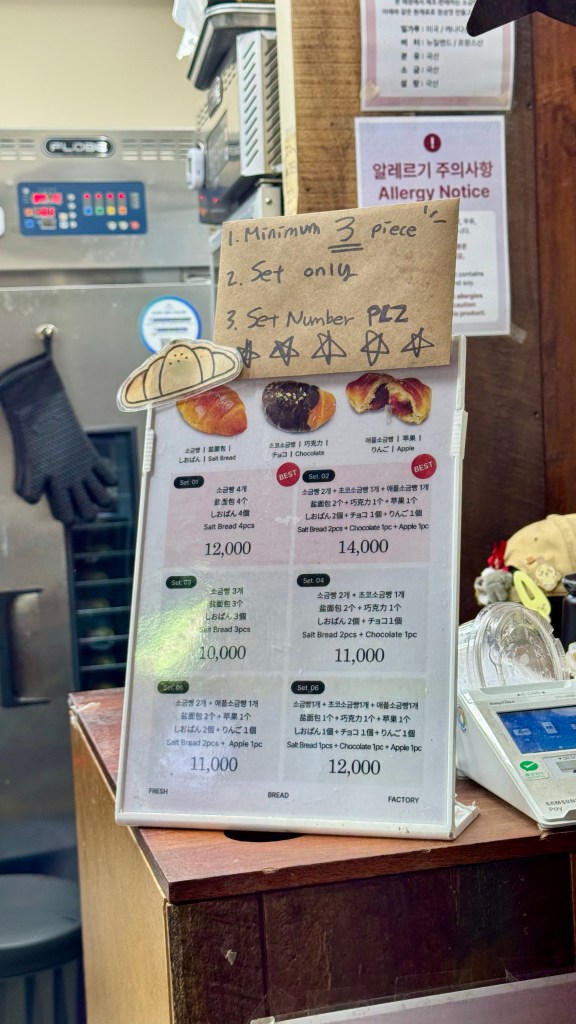 본 매장에서
밀가루 : 미국 / 캐나다
버 터 : 뉴질랜드 / 프랑스산
분 유 : 국산
소 금 : 국산
설 탕 : 국산
FLOBE
알레르기 주의사항
Allergy Notice
contains
allergies
caution
product.
1. Minimum 3 piece
2. Set only
3. Set Number PLZ
소금빵 | 盐面包 |
しおぱん | Salt Bread
초코소금빵 | 巧克力 |
チョコ | Chocolate
애플소금빵 | 苹果 |
りんご | Apple
Set. 01
BEST
소금빵 4개
盐面包 4个
しおぱん 4個
Salt Bread 4pcs
12,000
Set. 02
BEST
소금빵 2개 + 초코소금빵 1개 + 애플소금빵 1개
盐面包 2个 + 巧克力 1个 + 苹果 1个
しおぱん 2個 + チョコ 1個 + りんご 1個
Salt Bread 2pcs + Chocolate 1pc + Apple 1pc
14,000
Set. 03
소금빵 3개
盐面包 3个
しおぱん 3個
Salt Bread 3pcs
10,000
Set. 04
소금빵 2개 + 초코소금빵 1개
盐面包 2个 + 巧克力 1个
しおぱん 2個 + チョコ 1個
Salt Bread 2pcs + Chocolate 1pc
11,000
Set. 05
소금빵 2개 + 애플소금빵 1개
盐面包 2个 + 苹果 1个
しおぱん 2個 + りんご 1個
Salt Bread 2pcs + Apple 1pc
11,000
Set. 06
소금빵1개 + 초코소금빵1개 + 애플소금빵1개
盐面包 1个 + 巧克力 1个 + 苹果 1个
しおぱん 1個 + チョコ 1個 + りんご 1個
Salt Bread 1pc + Chocolate 1pc + Apple 1pc
12,000
FRESH BREAD FACTORY
SAMSUNG
pay